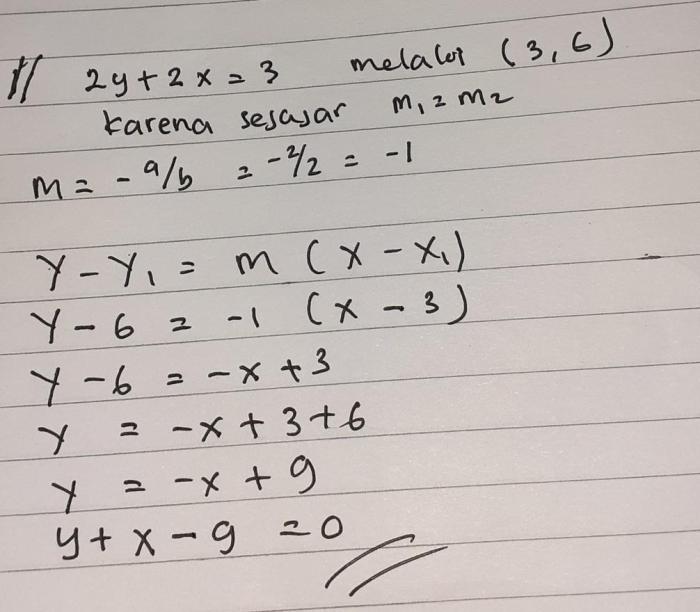 // 2y + 2x = 3 melalui (3,6)
karena sejajar m₁ = m₂
m = - a/b = -2/2 = -1
y - y₁ = m (x - x₁)
y - 6 = -1 (x - 3)
y - 6 = -x + 3
y = -x + 3 + 6
y = -x + 9
y + x - 9 = 0